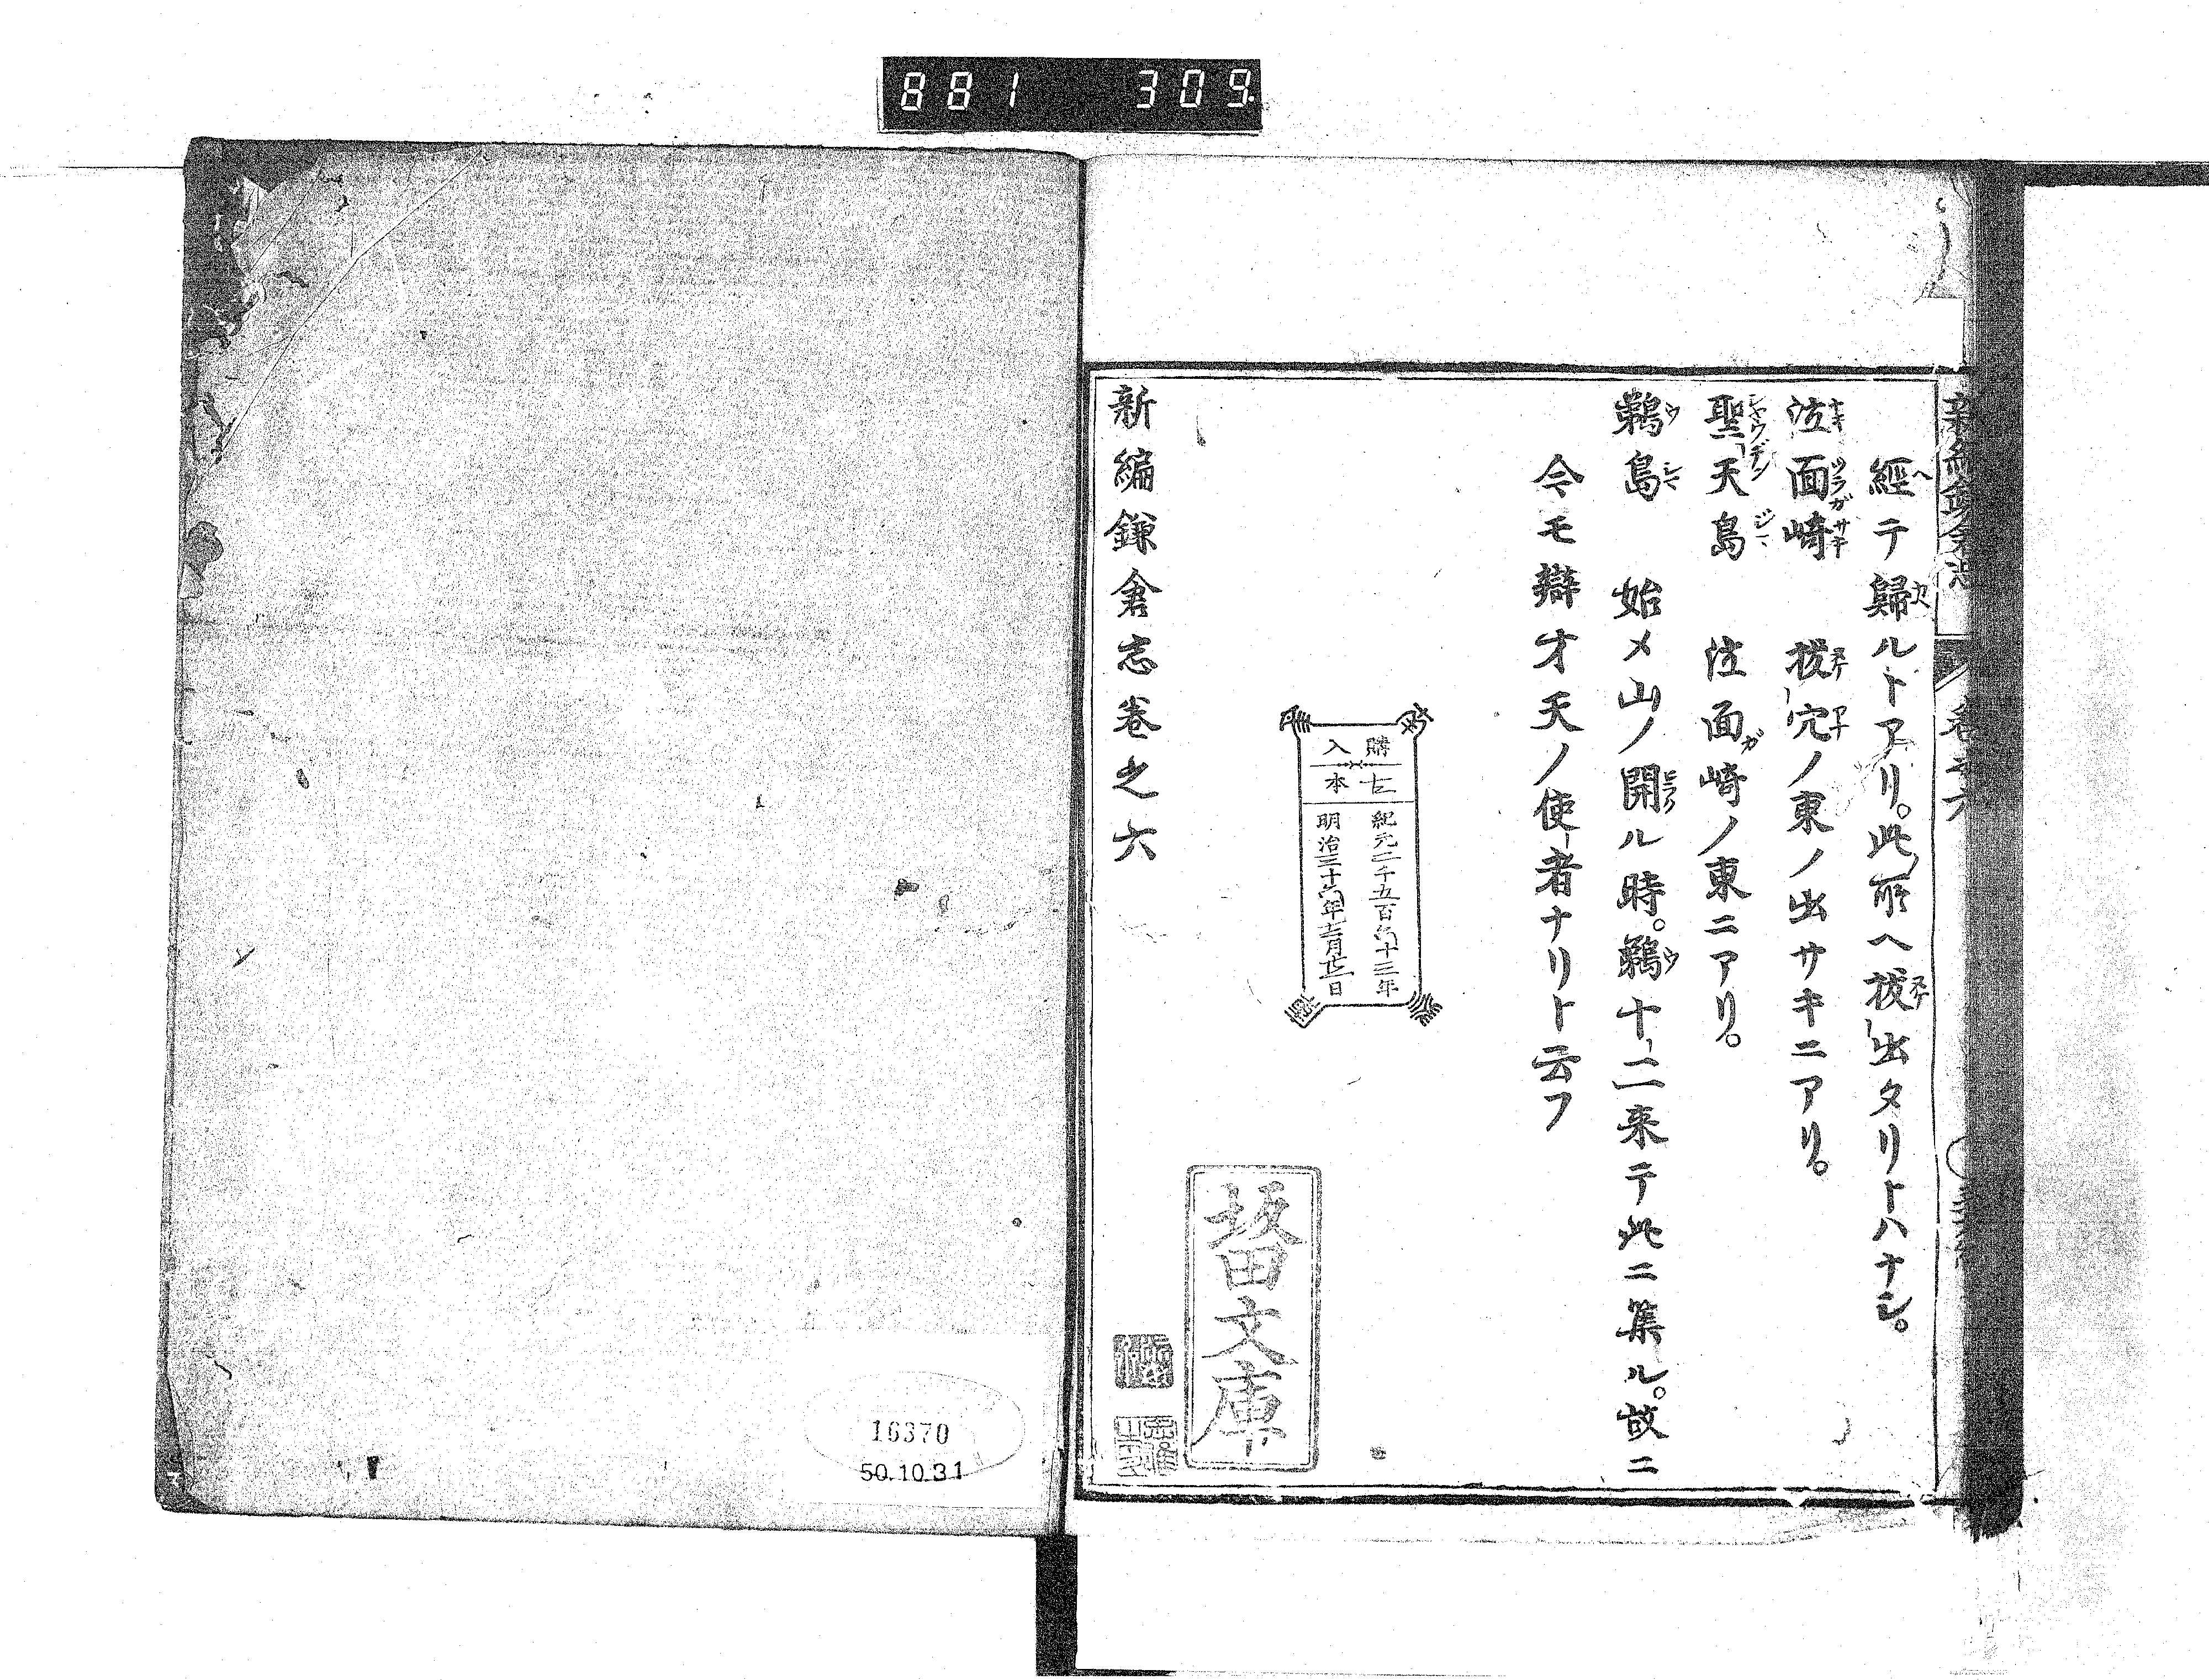 881 309
經テ歸ルトアリ。此所ヘ拔出タリトハナシ。
泣面崎 拔穴ノ東ノ出サキニアリ。
聖天島 泣面崎ノ東ニアリ。
鵜島 始メ山ノ開ル時。鵜十二来テ此ニ集ル。故ニ
今モ辯才天ノ使者ナリト云フ
購入
七本
紀元二千五百六十三年
明治三十六年
坂田文庫
新編鎌倉志卷之六
16370
50.10.31